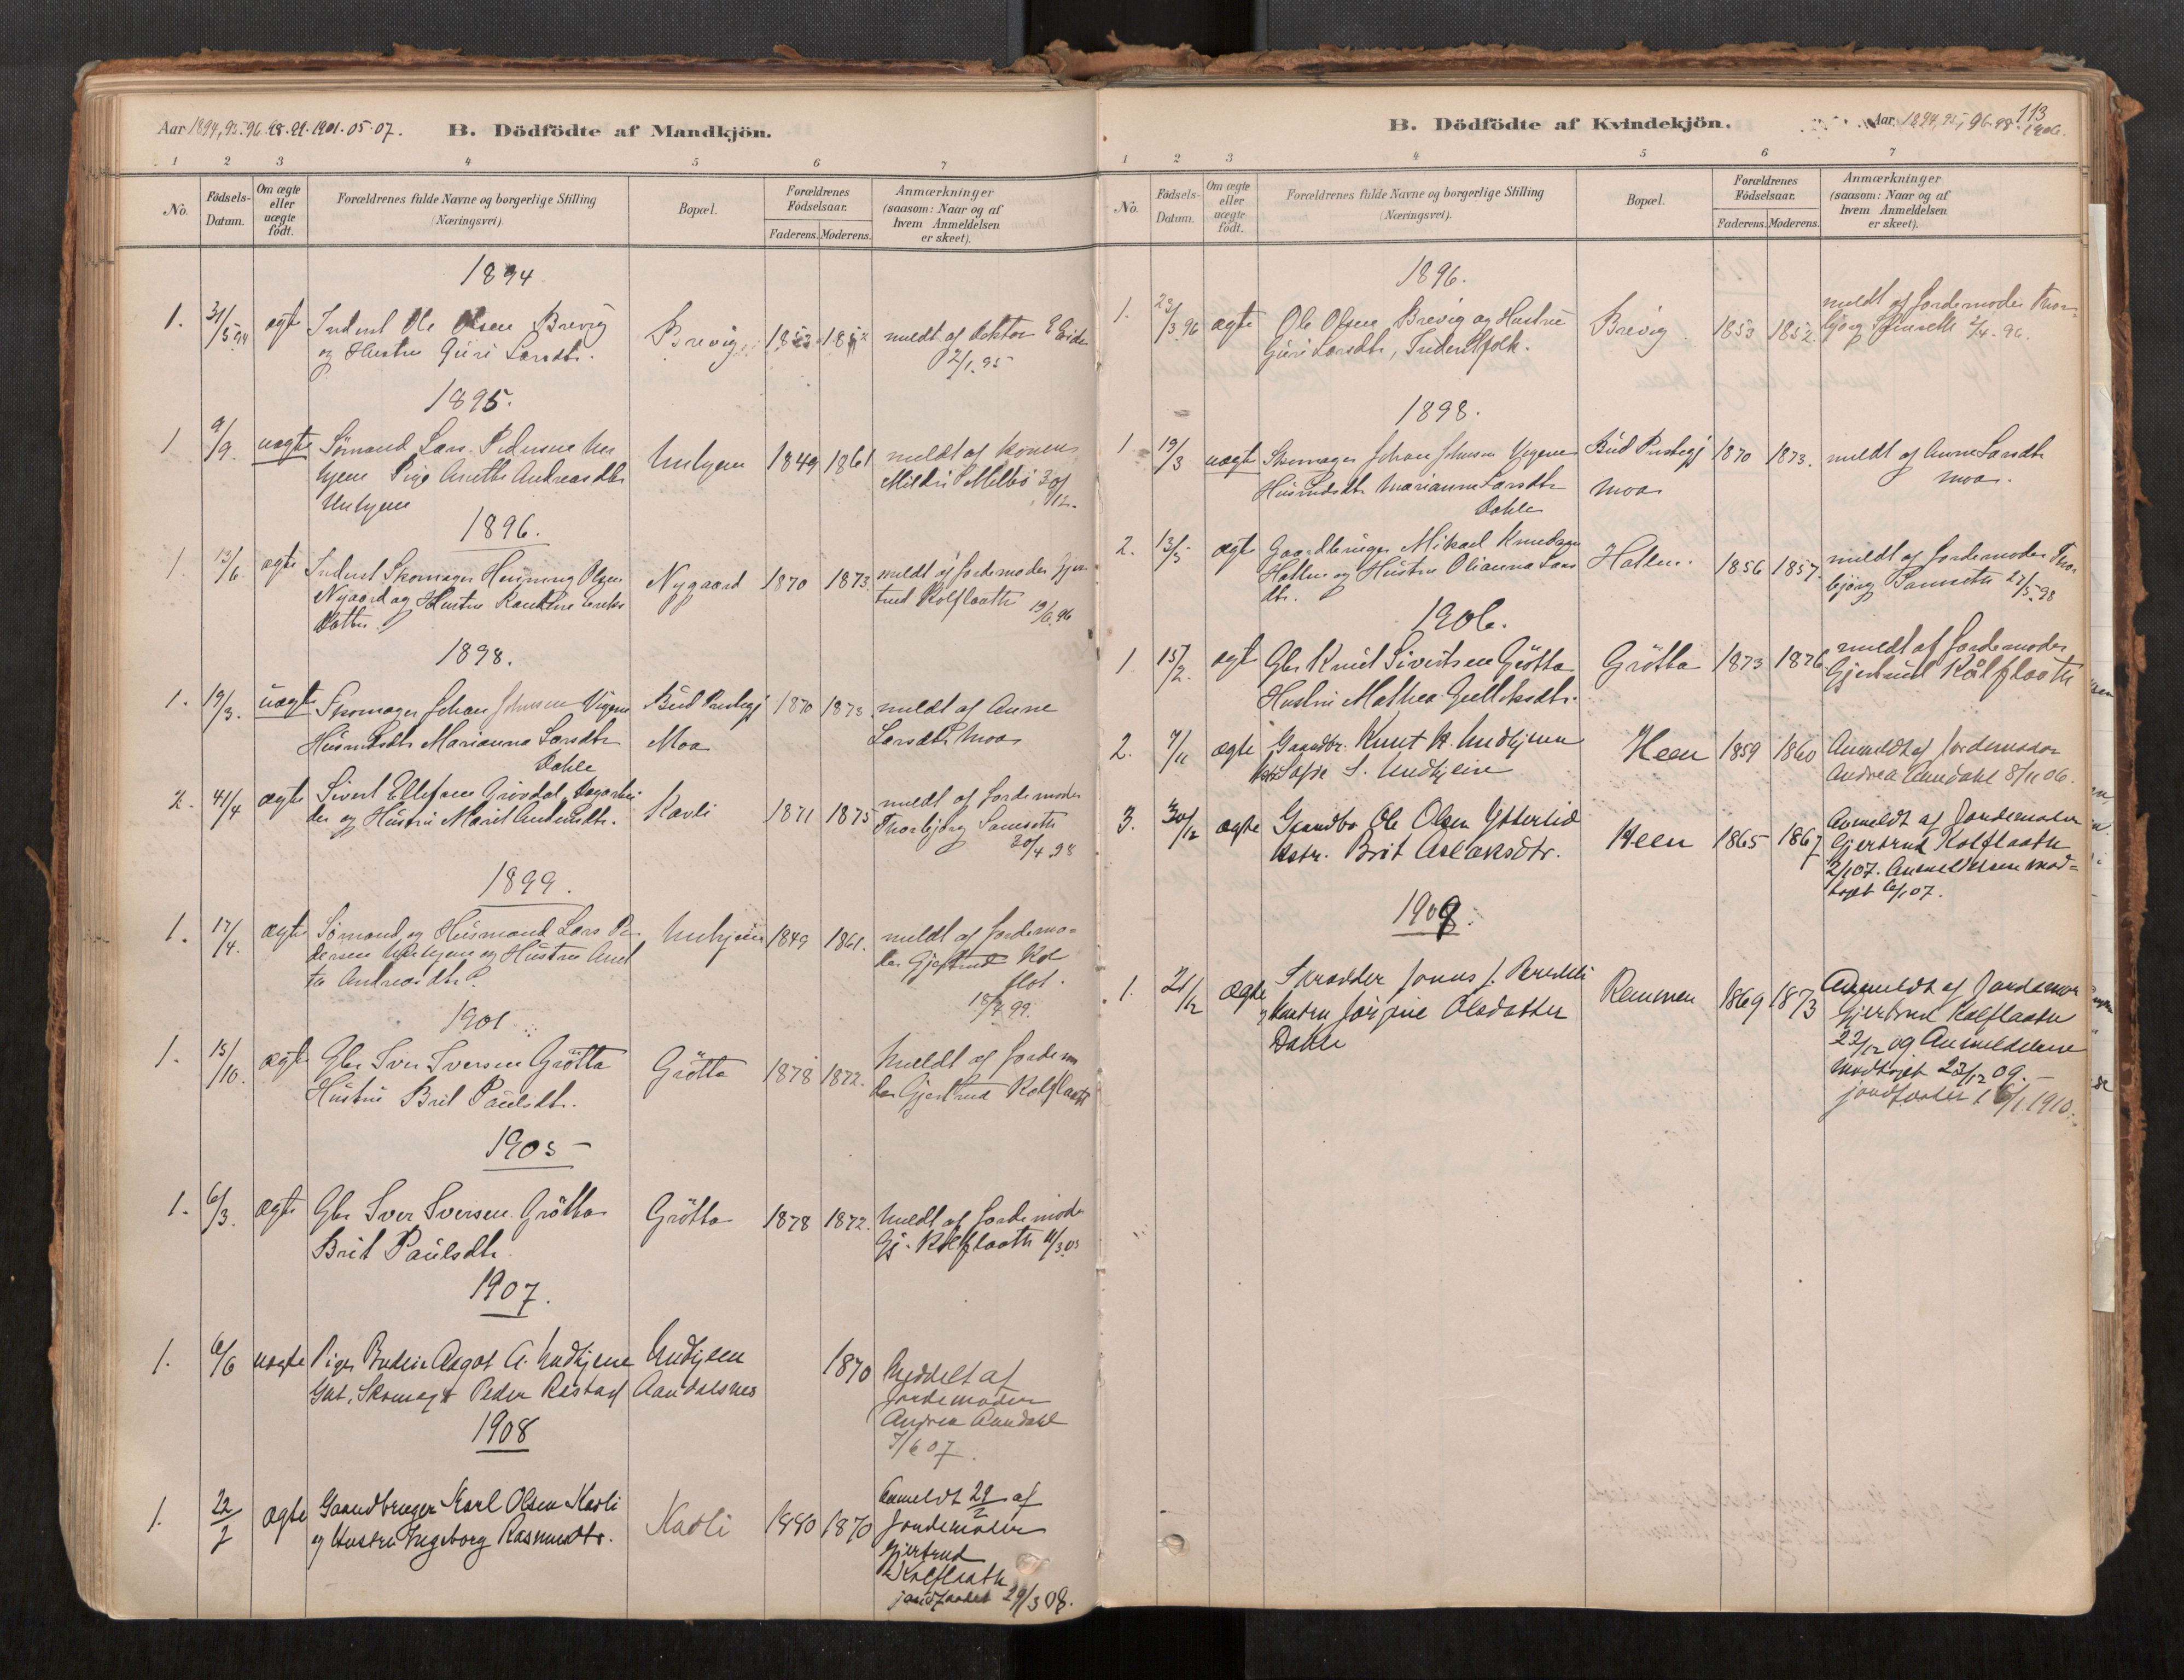 Aar 1894, 95. 96. 98. 99. 1901. 05. 07.
B. Dödfödte af Mandkjön.
1 2 3 4 5 6 7
No.
Födsels-
Datum.
Om ægte
eller
uægte
födt.
Forældrenes fulde Navne og borgerlige Stilling
(Næringsvei).
Bopæl.
Forældrenes
Födselsaar.
Faderens. Moderens.
Anmærkninger
(saasom: Naar og af
hvem Anmeldelsen
er skeet).
1894
1. 31/5 94 ægte Inderst Ole Olsen Brevig
og Hustru Guri Larsdtr.
Brevig 1853 1852
meldt af Doktor
2/1.95
1895.
1 9/9. uægte Sømand Lars Pedersen
Pige Anette Andreasdtr
1849 1861
meldt af Konen
30/12.
1896.
1. 13/6. ægte Inderst Skomager Henning Olsen
Nygaard og Hustru
Datter
Nygaard 1870 1873.
meldt af Jordemoder Gjer
trud Kolflaath
19/6.96
1898.
1. 19/3. uægte Skomager Johan Johnsen
Husmdsdtr Marianna Larsdtr
Dahle
Bud Prestegj
Moa
1870 1873.
meldt af Anne
Larsdtr Moa
2. ægte Sivert Ellefsen Grövdal
og Hustru Marit
Kavli 1871 1875
meldt af Jordemoder
Thorbjörg
20/4 98
1899.
1. 17/4. ægte Sømand og Husmand Lars Pe
dersen og Hustru Anet
te Andreasdtr.
1849 1861.
meldt af Jordemo=
der Gjertrud Kol
flot.
18/4 99.
1901
1. 15/10. ægte Gbr Iver Iversen Grötta
Hustru Brit Paulsdtr.
Grötta 1878 1872.
Meldt af Jordem
der Gjertrud Kolflaath
1905 –
1. 6/3. ægte Gbr Iver Iversen Grötta
Brit Paulsdtr.
Grötta 1878 1872.
Meldt af Jordemoder
Gj. Kolflaath 11/3.05
1907.
1. 6/6 uægte Pige Aagot A. Undhjem
Skomager Peder Rastad
Undhjem
Aandalsnes
1870
Meddelt af
Jordemoder
Andrea Aandahl
7/6 07.
1908
1. 22/2 ægte Gaardbruger Karl Olsen Kavli
og Hustru Ingeborg Rasmusdtr.
Kavli 1880 1870
Anmeldt 29/2 af
Jordemoder
Gjertrud
Kolflaath
jordfæstet 29/3 08.
113
B. Dödfödte af Kvindekjön.
Aar 1894, 95, 96. 98. 1906.
1 2 3 4 5 6 7
No.
Födsels-
Datum.
Om ægte
eller
uægte
födt.
Forældrenes fulde Navne og borgerlige Stilling
(Næringsvei).
Bopæl.
Forældrenes
Födselsaar.
Faderens. Moderens.
Anmærkninger
(saasom: Naar og af
hvem Anmeldelsen
er skeet).
1896.
1. 23/3 96 ægte Ole Olsen Brevig og Hustru
Guri Larsdtr, Inderstfolk.
Brevig 1853 1852.
meldt af Jordemoder Thor=
björg 2/4. 96.
1898.
1. 19/3 uægte Skomager Johan Johnsen
Husmdsdtr Marianna Larsdtr
Dahle
Bud Prestegj
Moa
1870 1873.
meldt af Anne Larsdtr
Moa.
2. 13/5 ægte Gaardbruger Mikael Knudsen
Hatlen og Hustru Olianna Lars
dtr.
Hatlen. 1856 1857.
meldt af Jordemoder Thor
björg 27/5.98
1906.
1. 15/2. ægte Gbr Knut Sivertsen Grötta
Hustru Mathea Gulleksdtr.
Grötta 1873 1876
meldt af Jordemoder
Gjertrud Kålflaath
2. 7/11 ægte Gaardbr. Knut A. Undhjem
Hstr. Sofie S. Undhjem
Heen 1859 1860
Anmeldt af Jordemoder
Andrea Aandahl 8/11 06.
3. 30/12 ægte Gaardbr Ole Olsen Ytterlid
Hstr. Brit Aslaksdtr.
Heen 1865 1867
Anmeldt af Jordemoder
Gjertrud Kolflaath
2/1 07. Anmeldelsen mod=
taget 6/1 07.
1909.
1. 21/12 ægte Skrædder Jonas J.
og Hustru Jörgine Olsdatter
Dahle
Remmen 1869 1873
Anmeldt af Jordemor
Gjertrud Kolflaath
22/12 09 Anmeldelsen
Modtaget 23/12 09. –
jordfæstet 6/1 1910.